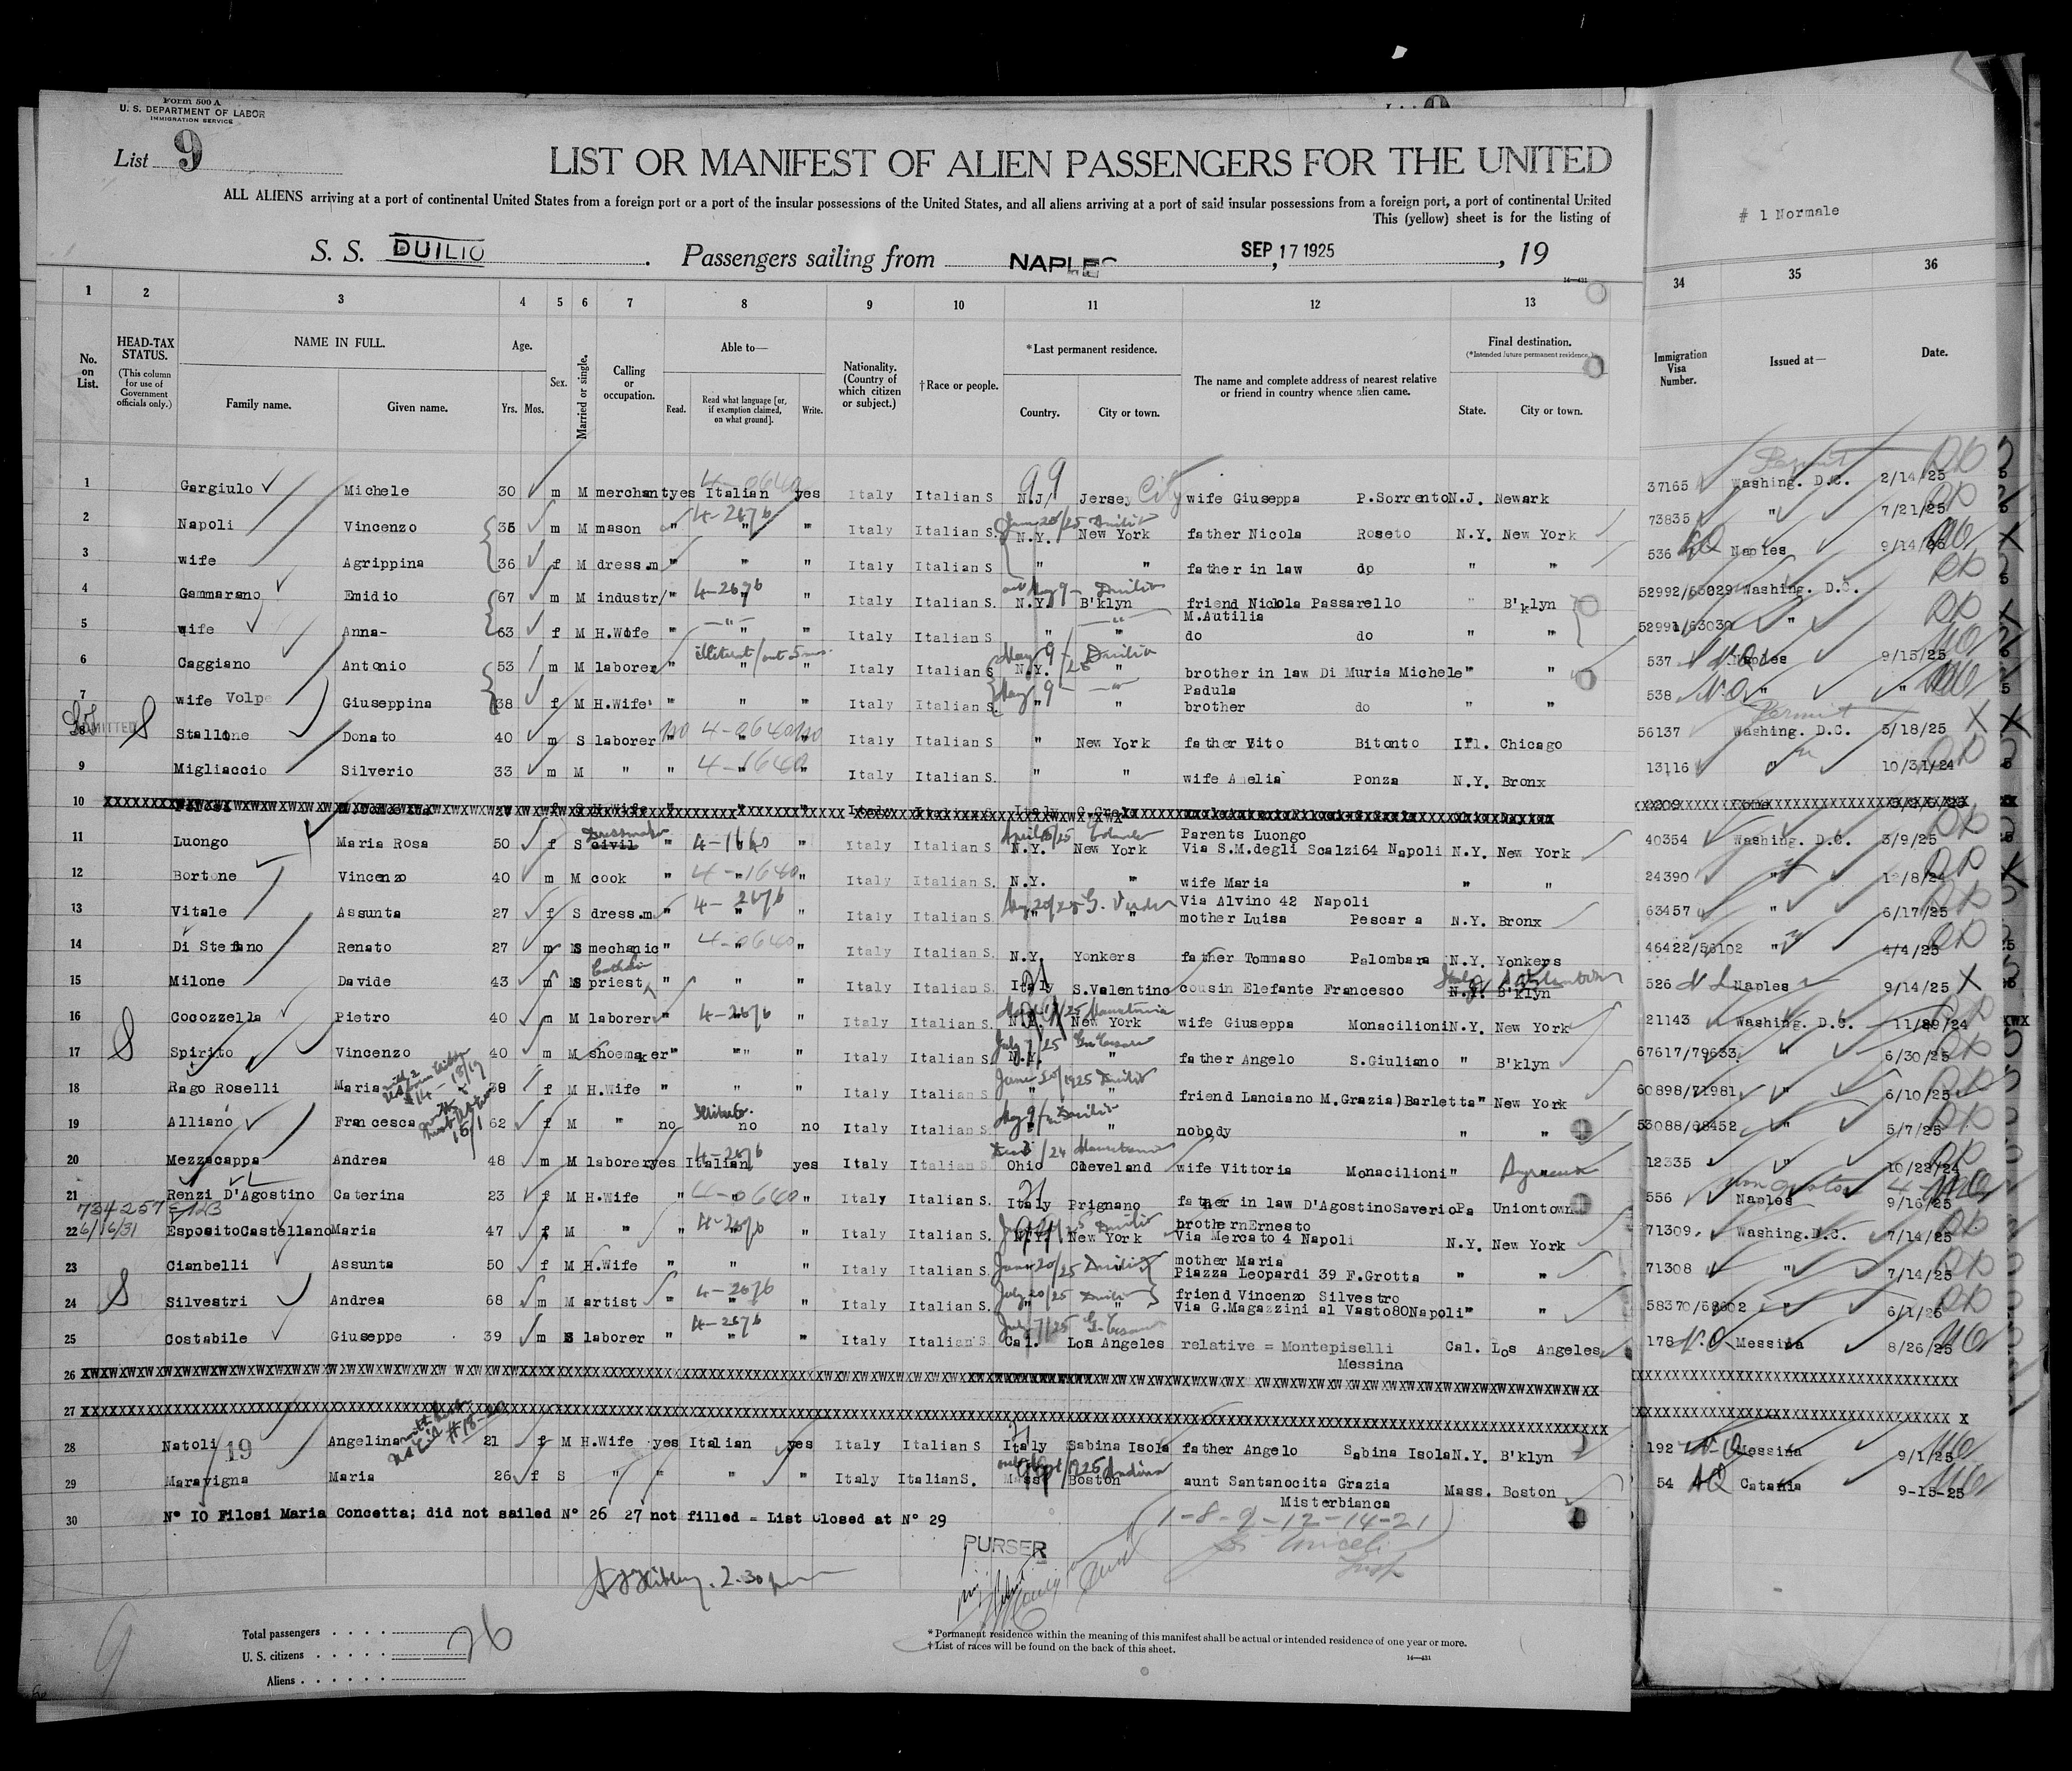 Form 500 A
U. S. DEPARTMENT OF LABOR
IMMIGRATION SERVICE
List 9
LIST OR MANIFEST OF ALIEN PASSENGERS FOR THE UNITED
ALL ALIENS arriving at a port of continental United States from a foreign port or a port of the insular possessions of the United States, and all aliens arriving at a port of said insular possessions from a foreign port, a port of continental United
This (yellow) sheet is for the listing of
# 1 Normale
S. S. DUILIO. Passengers sailing from NAPLES, SEP 17 1925, 19
14—431
1 2 3 4 5 6 7 8 9 10 11 12 13 34 35 36
No. on List.
HEAD-TAX STATUS. (This column for use of Government officials only.)
NAME IN FULL.
Family name. Given name.
Age. Yrs. Mos.
Sex.
Married or single.
Calling or occupation.
Able to—
Read. Read what language [or, if exemption claimed, on what ground]. Write.
Nationality. (Country of which citizen or subject.)
†Race or people.
*Last permanent residence.
Country. City or town.
The name and complete address of nearest relative or friend in country whence alien came.
Final destination. (*Intended future permanent residence.)
State. City or town.
Immigration Visa Number.
Issued at—
Date.
1 Gargiulo Michele 30 m M merchant yes Italian yes Italy Italian S N.J. Jersey City wife Giuseppa P.Sorrento N.J. Newark 37165 Permit Washing. D.C. 2/14/25
4-0640
2 Napoli Vincenzo 35 m M mason " " " Italy Italian S. N.Y. New York father Nicola Roseto N.Y. New York 73835 " 7/21/25
4-2676 June 20/25 Duilio
3 wife Agrippina 36 f M dress.m " " " Italy Italian S " " father in law do " " 536 Naples 9/14/25
4 Gammarano Emidio 67 m M industr/ " " " Italy Italian S. N.Y. B'klyn friend Nicola Passarello " B'klyn 52992/63029 Washing. D.C.
4-2676 May 9 - Duilio
M.Autilia
5 wife Anna- 63 f M H.Wife " " " Italy Italian S " " do do " " 52991/63030 "
6 Caggiano Antonio 53 m M laborer " " " Italy Italian S N.Y. " brother in law Di Muria Michele " " 537 Naples 9/15/25
May 9 - Duilio 25
Padula
7 wife Volpe Giuseppina 38 f M H.Wife " " " Italy Italian S. " " brother do " " 538 " "
May 9 -
ADMITTED
8 Stallone Donato 40 m S laborer no " no Italy Italian S " New York father Vito Bitonto Ill. Chicago 56137 Permit Washing. D.C. 5/18/25
4-0640
9 Migliaccio Silverio 33 m M " " " " Italy Italian S. " " wife Amelia Ponza N.Y. Bronx 13116 " 10/31/24
10
11 Luongo Maria Rosa 50 f S civil Dressmaker " " Italy Italian S. N.Y. New York Parents Luongo Via S.M.degli Scalzi64 Napoli N.Y. New York 40354 Washing. D.C. 3/9/25
12 Bortone Vincenzo 40 m M cook " " " Italy Italian S. N.Y. " wife Maria " " 24390 " 12/8/24
4-1640
Via Alvino 42 Napoli
13 Vitale Assunta 27 f S dress.m " " " Italy Italian S. " " mother Luisa Pescara N.Y. Bronx 63457 " 6/17/25
4-2676
14 Di Stefano Renato 27 m S mechanic " " " Italy Italian S. N.Y. Yonkers father Tommaso Palombara N.Y. Yonkers 46422/56102 " 4/4/25
4-0640
15 Milone Davide 43 m S Catholic priest " " " Italy Italian S. Italy S.Valentino cousin Elefante Francesco N.Y. B'klyn 526 Naples 9/14/25
16 Cocozzella Pietro 40 m M laborer " " " Italy Italian S. N.Y. New York wife Giuseppa Monacilioni N.Y. New York 21143 Washing. D.C. 11/29/24
4-2676
17 Spirito Vincenzo 40 m M shoemaker " " " Italy Italian S. N.Y. " father Angelo S.Giuliano " B'klyn 67617/79633 " 6/30/25
18 Rago Roselli Maria 38 f M H.Wife " " " Italy Italian S " " friend Lanciano M.Grazia)Barletta " New York 60898/71981 " 6/10/25
June 20/1925 Duilio
19 Alliano Francesca 62 f M " no no no Italy Italian S. " " nobody " " 53088/68452 " 5/7/25
May 9/ Duilio
20 Mezzacappa Andrea 48 m M laborer yes Italian yes Italy Italian S Ohio Cleveland wife Vittoria Monacilioni " Syracuse 12335 " 10/22/24
4-2676
21 Renzi D'Agostino Caterina 23 f M H.Wife " " " Italy Italian S. Italy Prignano father in law D'AgostinoSaverio Pa Uniontown 556 non quota Naples 9/16/25
4-0640
22 6/16/31 EspositoCastellano Maria 47 f M " " " " Italy Italian S. N.Y. New York brothernErnesto Via Mercato 4 Napoli N.Y. New York 71309 Washing.D.C. 7/14/25
4-2676
23 Cianbelli Assunta 50 f M H.Wife " " " Italy Italian S. " " mother Maria Piazza Leopardi 39 F.Grotta " " 71308 " 7/14/25
June 20/25 Duilio
24 Silvestri Andrea 68 m M artist " " " Italy Italian S. " " friend Vincenzo Silvestro Via G.Magazzini al Vasto80Napoli " " 58370/68602 " 6/1/25
4-2676 July 20/25 Duilio
25 Costabile Giuseppe 39 m S laborer " " " Italy Italian S Cal. Los Angeles relative = Montepiselli Messina Cal. Los Angeles 178 Messina 8/26/25
4-2676 July 7/25
26
27
28 Natoli Angelina 21 f M H.Wife yes Italian yes Italy Italian S Italy Sabina Isola father Angelo Sabina Isola N.Y. B'klyn 192 Messina 9/1/25
19
29 Maravigna Maria 26 f S " " " " Italy Italian S. Mass. Boston aunt Santanocita Grazia Misterbianca Mass. Boston 54 Catania 9-15-25
30 N° 10 Filosi Maria Concetta; did not sailed N° 26 27 not filled = List Closed at N° 29
(1-8-9-12-14-21)
PURSER
2.30 pm
Total passengers
U. S. citizens
Aliens
26
9
* Permanent residence within the meaning of this manifest shall be actual or intended residence of one year or more.
† List of races will be found on the back of this sheet.
14—431